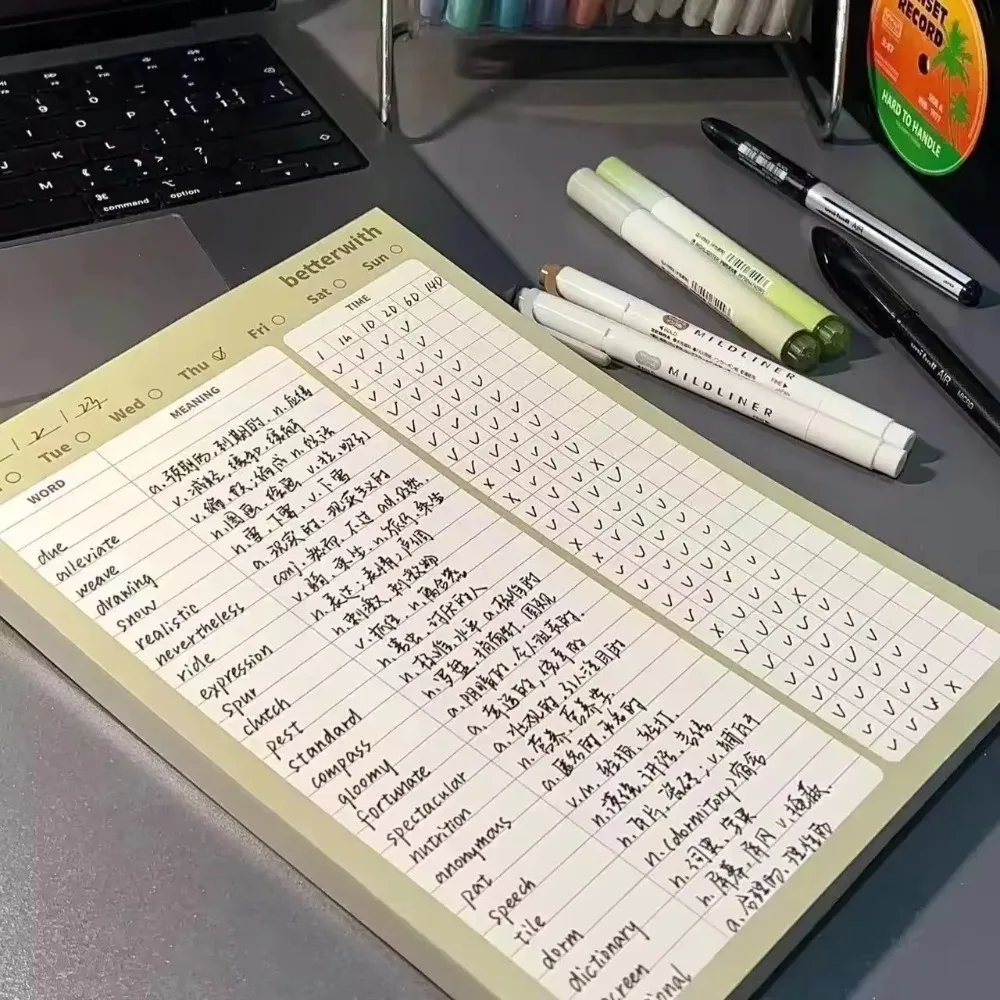 SUNSET
RECORD
HARD TO HANDLE
command option
uni-ball AIR
uni-ball AIR MICRO
MILDLINER
MILDLINER
betterwith
Tue Wed Thu Fri Sat Sun
WORD MEANING TIME
1 1h 1D 2D 6D 14D
due a. 预期的, 到期的, n. 应得
alleviate v. 减轻, 缓和, 缓解
weave v. 编, 织, 编成 n. 织法
drawing n. 图画, 绘画
snow n. 雪, 下雪 v. 下雪
realistic a. 现实的, 现实主义的
nevertheless conj. 然而, 不过 adv. 仍然
ride v. 骑, 乘坐 n. 旅行, 乘坐
expression n. 表达, 表情, 声调
spur n. 刺激, 刺激物
clutch v. 抓住 n. 离合器
pest n. 害虫, 讨厌的人
standard n. 标准, 水平 a. 标准的
compass n. 罗盘, 指南针, 圆规
gloomy a. 阴暗的, 令人沮丧的
fortunate a. 幸运的, 侥幸的
spectacular a. 壮观的, 引人注目的
nutrition n. 营养, 营养学
anonymous a. 匿名的
pat v./n. 轻拍, 轻打
speech n. 演说, 讲话, 言语
tile n. 瓦片, 瓷砖, v. 铺瓦于
dorm n. (dormitory) 宿舍
dictionary n. 词典, 字典
screen n. 屏幕, 屏风 v.
a. 合理的, 理性的